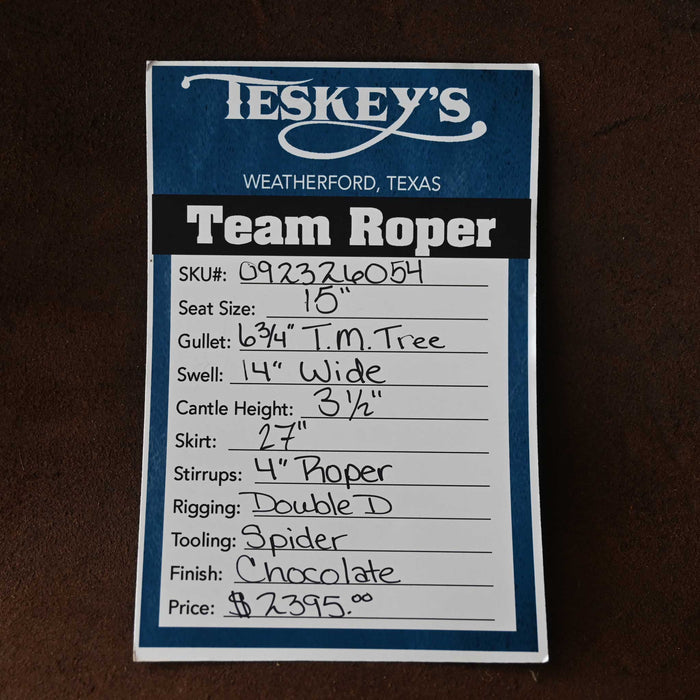 TESKEY'S
WEATHERFORD, TEXAS
Team Roper
SKU#: 092326054
Seat Size: 15"
Gullet: 6 3/4" T.M. Tree
Swell: 14" Wide
Cantle Height: 3 1/2"
Skirt: 27"
Stirrups: 4" Roper
Rigging: Double D
Tooling: Spider
Finish: Chocolate
Price: $2395.00